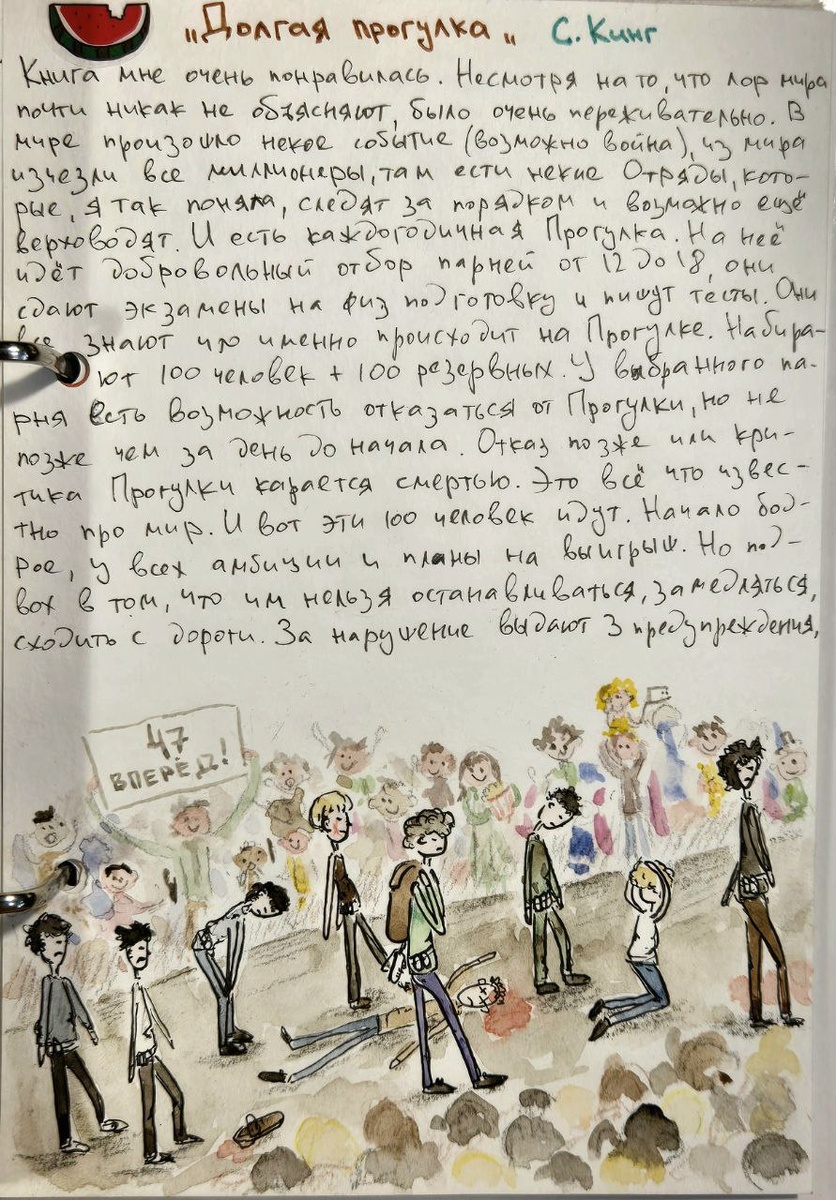 „Долгая прогулка„ С. Кинг
Книга мне очень понравилась. Несмотря на то, что лор мира
почти никак не объясняют, было очень переживательно. В
мире произошло некое событие (возможно война), из мира
изчезли все миллионеры, там ести некие Отряды, кото-
рые, я так поняла, следят за порядком и возможно ещё
верховодят. И есть каждогодичная Прогулка. На неё
идёт добровольный отбор парней от 12 до 18, они
сдают экзамены на физ подготовку и пишут тесты. Они
все знают что именно происходит на Прогулке. Набира-
ют 100 человек + 100 резервных. У выбранного па-
рня есть возможность отказаться от Прогулки, но не
позже чем за день до начала. Отказ позже или кри-
тика Прогулки карается смертью. Это всё что извес-
тно про мир. И вот эти 100 человек идут. Начало бод-
рое, у всех амбиции и планы на выигрыш. Но под-
вох в том, что им нельзя останавливаться, замедляться,
сходить с дороги. За нарушение выдают 3 предупреждения,
47
ВПЕРЁД!